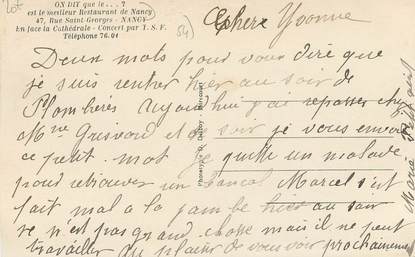 ON DIT que le...?
est le meilleur Restaurant de Nancy
47, Rue Saint-Georges - NANCY
En face la Cathédrale - Concert par T. S. F.
Téléphone 76.04
(54)
Chère Yvonne
Deux mots pour vous dire que
je suis rentrer hier au soir de
Plombières Aujourd'hui j'ai repasser chez
Mme Grisvard et ce soir je vous envoi
ce petit mot je quitte un malade
pour retrouver un Marcel s'est
fait mal a la jambe hier au soir
ce n'est pas grand chose mais il ne peut
travailler au plaisir de vous voir prochainement
Marie